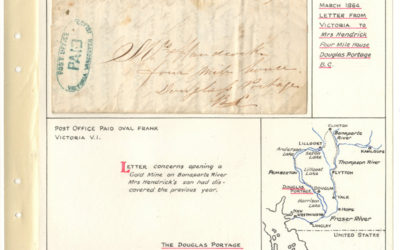 POST OFFICE
PAID
VICTORIA VANCOUVER
Mrs Hendrick
four mile house
Douglas Portage
B.C.
MARCH 1864
LETTER FROM
VICTORIA TO
MRS HENDRICK
FOUR MILE HOUSE
DOUGLAS PORTAGE
B.C.
POST OFFICE PAID OVAL FRANK
VICTORIA V.I.
LETTER CONCERNS OPENING A
GOLD MINE ON BONAPARTE RIVER
MRS HENDRICK'S SON HAD DIS-
COVERED THE PREVIOUS YEAR.
THE DOUGLAS PORTAGE
CLINTON
BONAPARTE RIVER
LILLOOET
KAMLOOPS
ANDERSON LAKE
SETON LAKE
THOMPSON RIVER
LYTTON
PEMBERTON
LILLOOET LAKE
DOUGLAS PORTAGE
DOUGLAS
YALE
HARRISON LAKE
HOPE
NEW WESTMINSTER
FRASER RIVER
LANGLEY
UNITED STATES